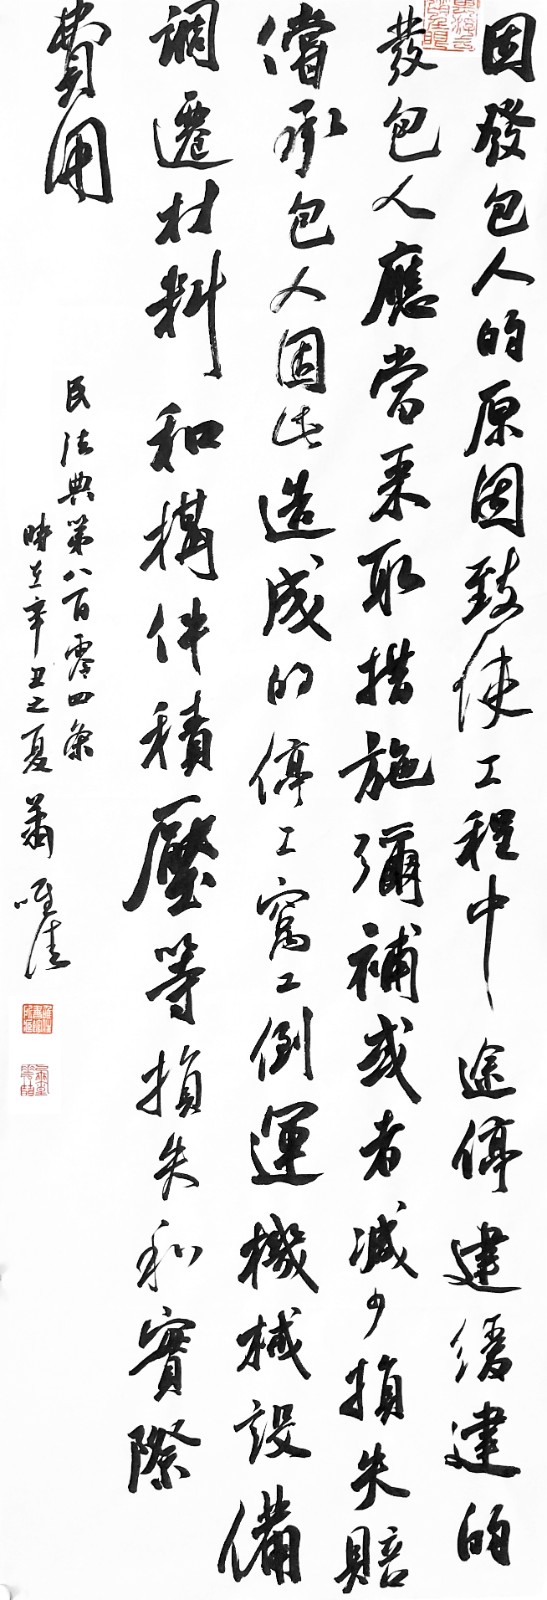 因發包人的原因致使工程中途停建緩建的
發包人應當采取措施彌補或者減少損失賠
償承包人因此造成的停工窩工倒運機械設備
調遷材料和構件積壓等損失和實際
費用
民法典第八百零四條
時在辛丑之夏蕭唯佳